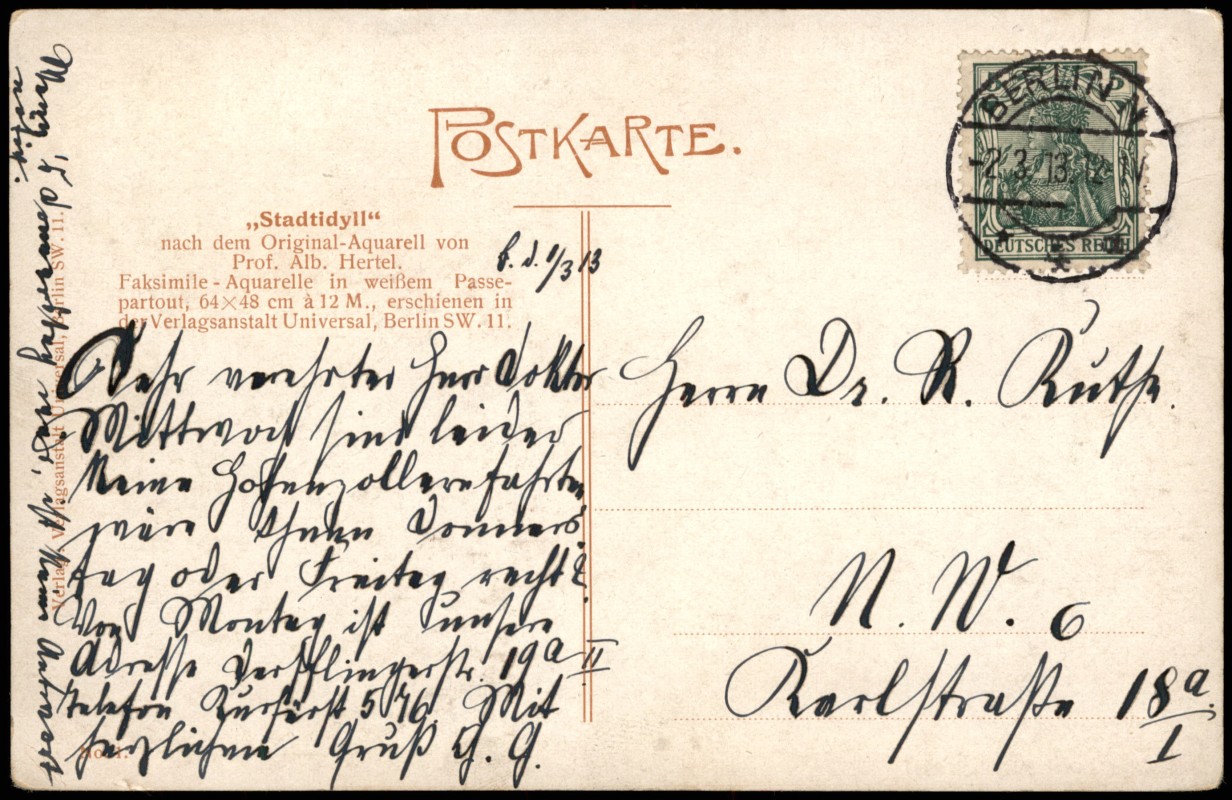 POSTKARTE.
„Stadtidyll“
nach dem Original-Aquarell von
Prof. Alb. Hertel.
Faksimile-Aquarelle in weißem Passe-
partout, 64×48 cm à 12 M., erschienen in
der Verlagsanstalt Universal, Berlin SW. 11.
B. d. 1/3 13
Sehr verehrter Herr Doktor
Mittwoch sind leider
keine Hohenzollernfahrten
wäre Ihnen Donners
tag oder Freitag recht?
Von Montag ist unsere
Adresse Derfflingerstr. 19a II
Telefon Kurfürst 576. Mit
herzlichem Gruß G. G.
Verlag: Verlagsanstalt Universal, Berlin SW. 11.
BERLIN
-2.3.13.
DEUTSCHES REICH
Herrn Dr. R. Ruthe.
N. W. 6
Karlstraße 18a
I